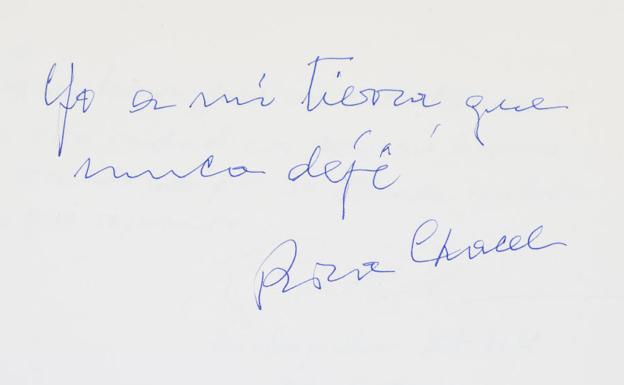 Yo a mi tierra, que
nunca dejé
Rosa Chacel